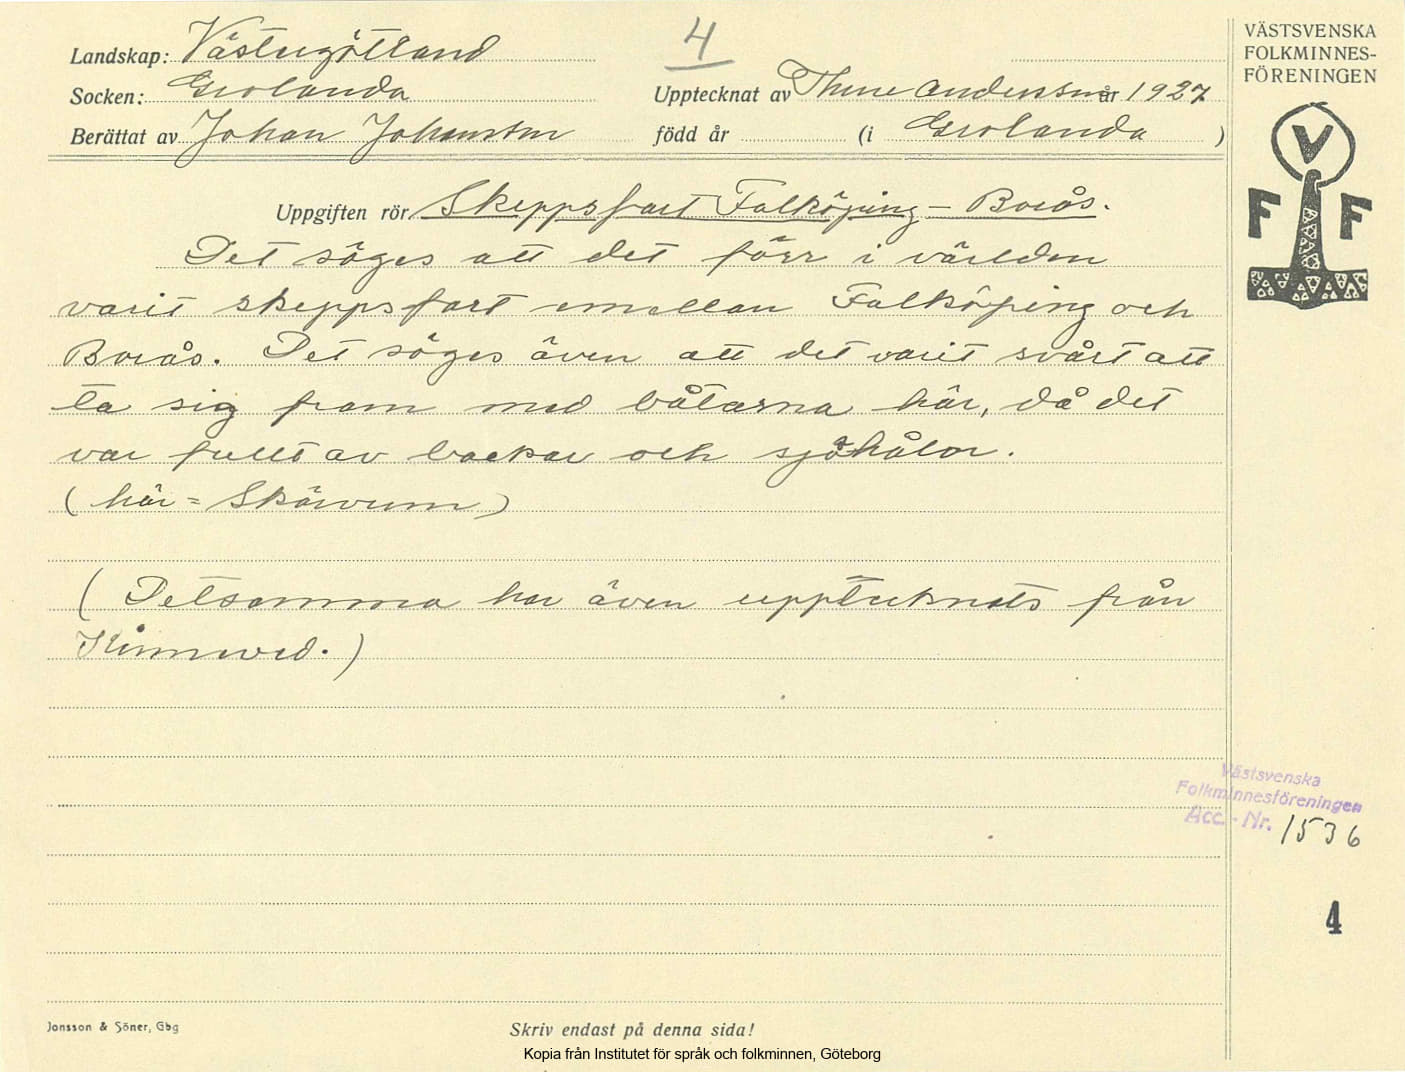 4
VÄSTSVENSKA
FOLKMINNES-
FÖRENINGEN
Landskap: Västergötland
Socken: Grolanda
Upptecknat av Thure Andersson år 1927
Berättat av Johan Johansson född år (i Grolanda )
V
F F
Uppgiften rör Skeppsfart Falköping – Borås.
Det säges att det förr i världen
varit skeppsfart emellan Falköping och
Borås. Det säges även att det varit svårt att
ta sig fram med båtarna här, då det
var fullt av backar och sjöhålor.
(här = Skärvum)
(Detsamma har även upptecknats från
Kinneved.)
Västsvenska
Folkminnesföreningen
Acc. - Nr. 1536
4
Jonsson & Söner, Gbg
Skriv endast på denna sida!
Kopia från Institutet för språk och folkminnen, Göteborg